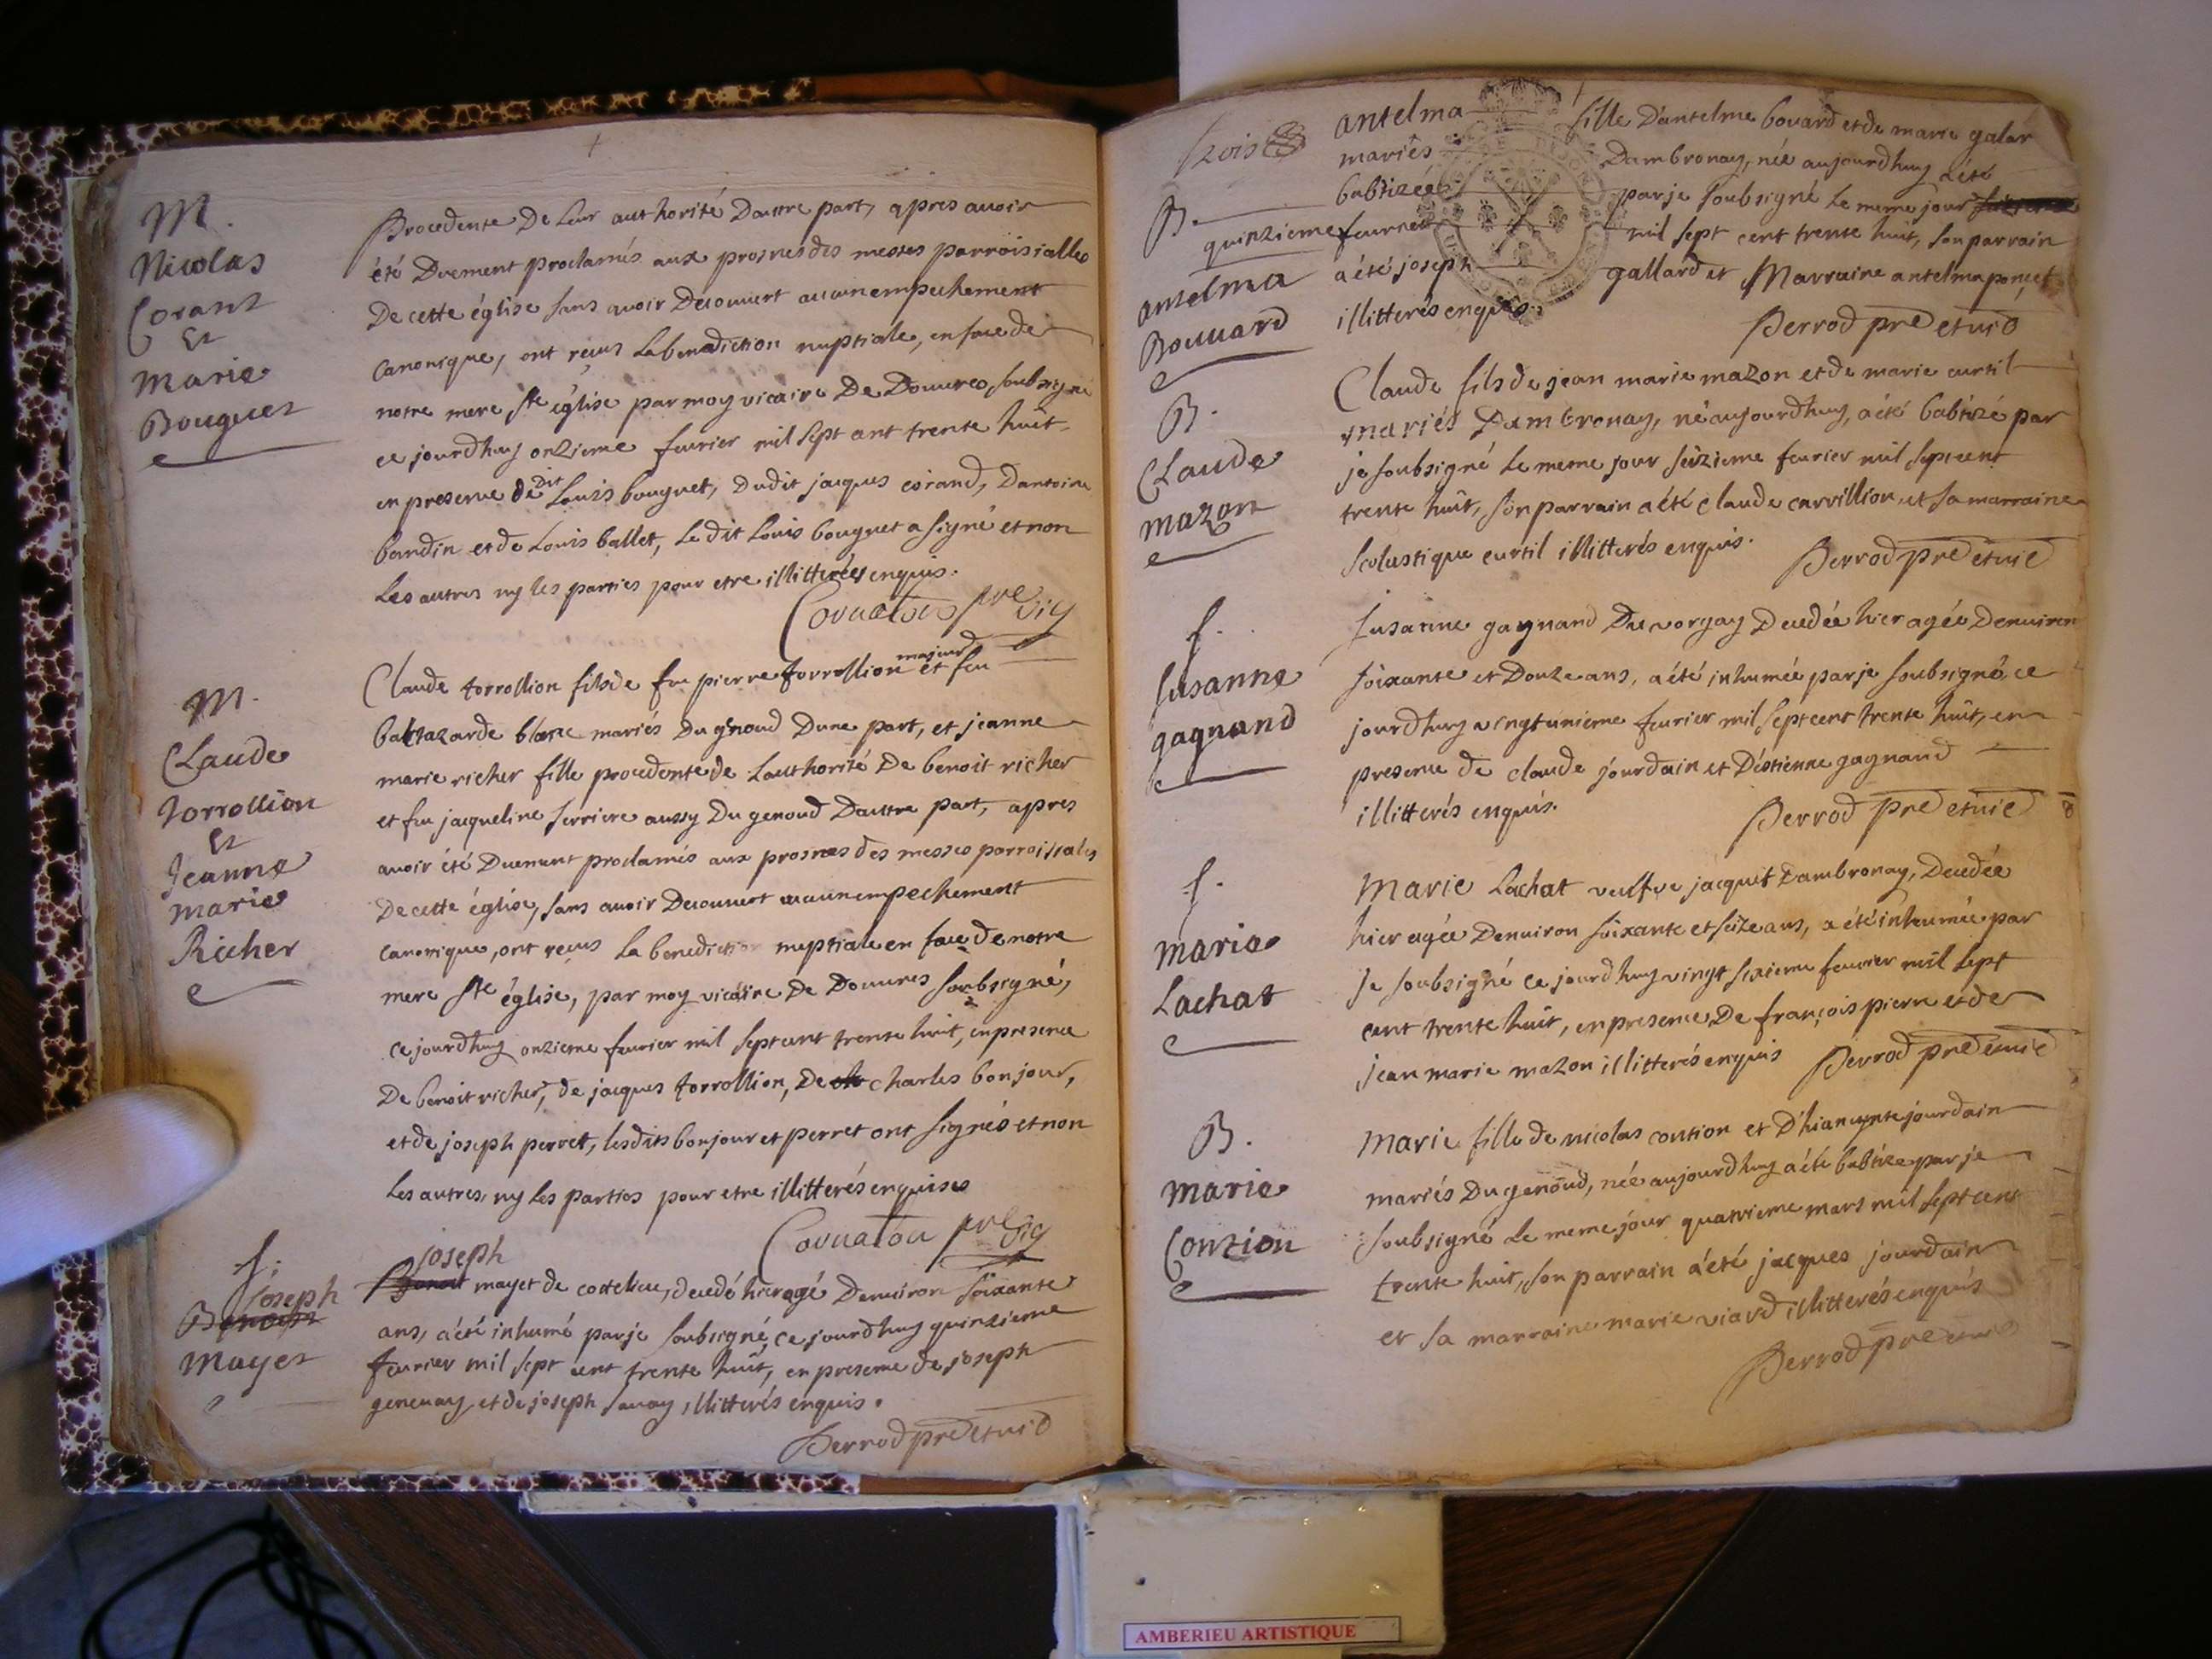 M.
Nicolas
Corant
Et
Marie
Bouguet
procedente de leur authorité dautre part, apres avoir
été duement proclamés aux prosnes des messes parroissialles
de cette église sans avoir decouvert aucun empechement
canonique, ont reçus la benediction nuptiale, en face de
notre mere ste église par moy vicaire de Douvres, soubsigné
ce jourdhuy onzieme fevrier mil sept cent trente huit
en presence dudit Louis bouguet, dudit jacques corand, dantoine
bandin et de Louis ballet, le dit Louis bouguet a signé et non
les autres ny les parties pour etre illitterées enquis.
pre vic
M.
Claude
torrollion
Et
Jeanne
marie
Richer
Claude torrollion fils de feu pierre torrollion majeur et feu
baltazarde blanc mariés du genoud dune part, et jeanne
marie richer fille procedente de lauthorité de benoit richer
et feu jacqueline serriere aussy du genoud dautre part, apres
avoir été duement proclamés aux prosnes des messes parroissiales
de cette église, sans avoir decouvert aucun empechement
canonique, ont reçus la benediction nuptiale en face de notre
mere ste église, par moy vicaire de Douvres soubsigné,
ce jourdhuy onzieme fevrier mil sept cent trente huit, en presence
de benoit richer, de jacques torrollion, de charles bonjour,
et de joseph perret, lesdits bonjour et perret ont signés et non
les autres, ny les parties pour etre illitterés enquises
pre vic
f.
Joseph
Benoist
Mayet
joseph
Benoit mayet de cotelieu, decedé hier agé denviron soixante
ans, a été inhumé par je soubsigné, ce jourdhuy quinzieme
fevrier mil sept cent trente huit, en presence de joseph
genevay et de joseph savay illitterés enquis.
Perrod pre et vic
trois
B.
quinzieme
antelma
Bouvard
antelma fille dantelme bovard et de marie galar
mariés Dambronay, née aujourdhuy a été
babtizée par je soubsigné le meme jour
fevrier mil sept cent trente huit, son parrain
a été joseph gallard et Marraine antelma poncet
illitterés enquis.
Perrod pre et vic
B.
Claude
mazon
Claude fils de jean marie mazon et de marie curtil
mariés Dambronay, né aujourdhuy, a été babtizé par
je soubsigné le meme jour seizieme fevrier mil sept cent
trente huit, son parrain a été claude carvillion, et sa marraine
scolastique curtil illitterés enquis.
Perrod pre et vic
f.
susanne
gagnand
susanne gagnand du vorgay decedée hier agée denviron
soixante et douze ans, a été inhumée par je soubsigné, ce
jourdhuy vingt unieme fevrier mil sept cent trente huit, en
presence de claude jourdain et destienne gagnand
illitterés enquis.
Perrod pre et vic
f.
marie
Lachat
Marie Lachat veufve jacquet dambronay, decedée
hier agée denviron soixante et seize ans, a été inhumée par
je soubsigné ce jourdhuy vingt sixieme fevrier mil sept
cent trente huit, en presence de françois pierre et de
jean marie mazon illitterés enquis
Perrod pre et vic
B.
marie
Contion
Marie fille de nicolas contion et dhiancynte jourdain
mariés du genoud, née aujourdhuy a été babtize par je
soubsigné le meme jour quatrieme mars mil sept cent
trente huit, son parrain a été jacques jourdain
et sa marraine marie viard illitterés enquis
Perrod pre et vic
AMBERIEU ARTISTIQUE